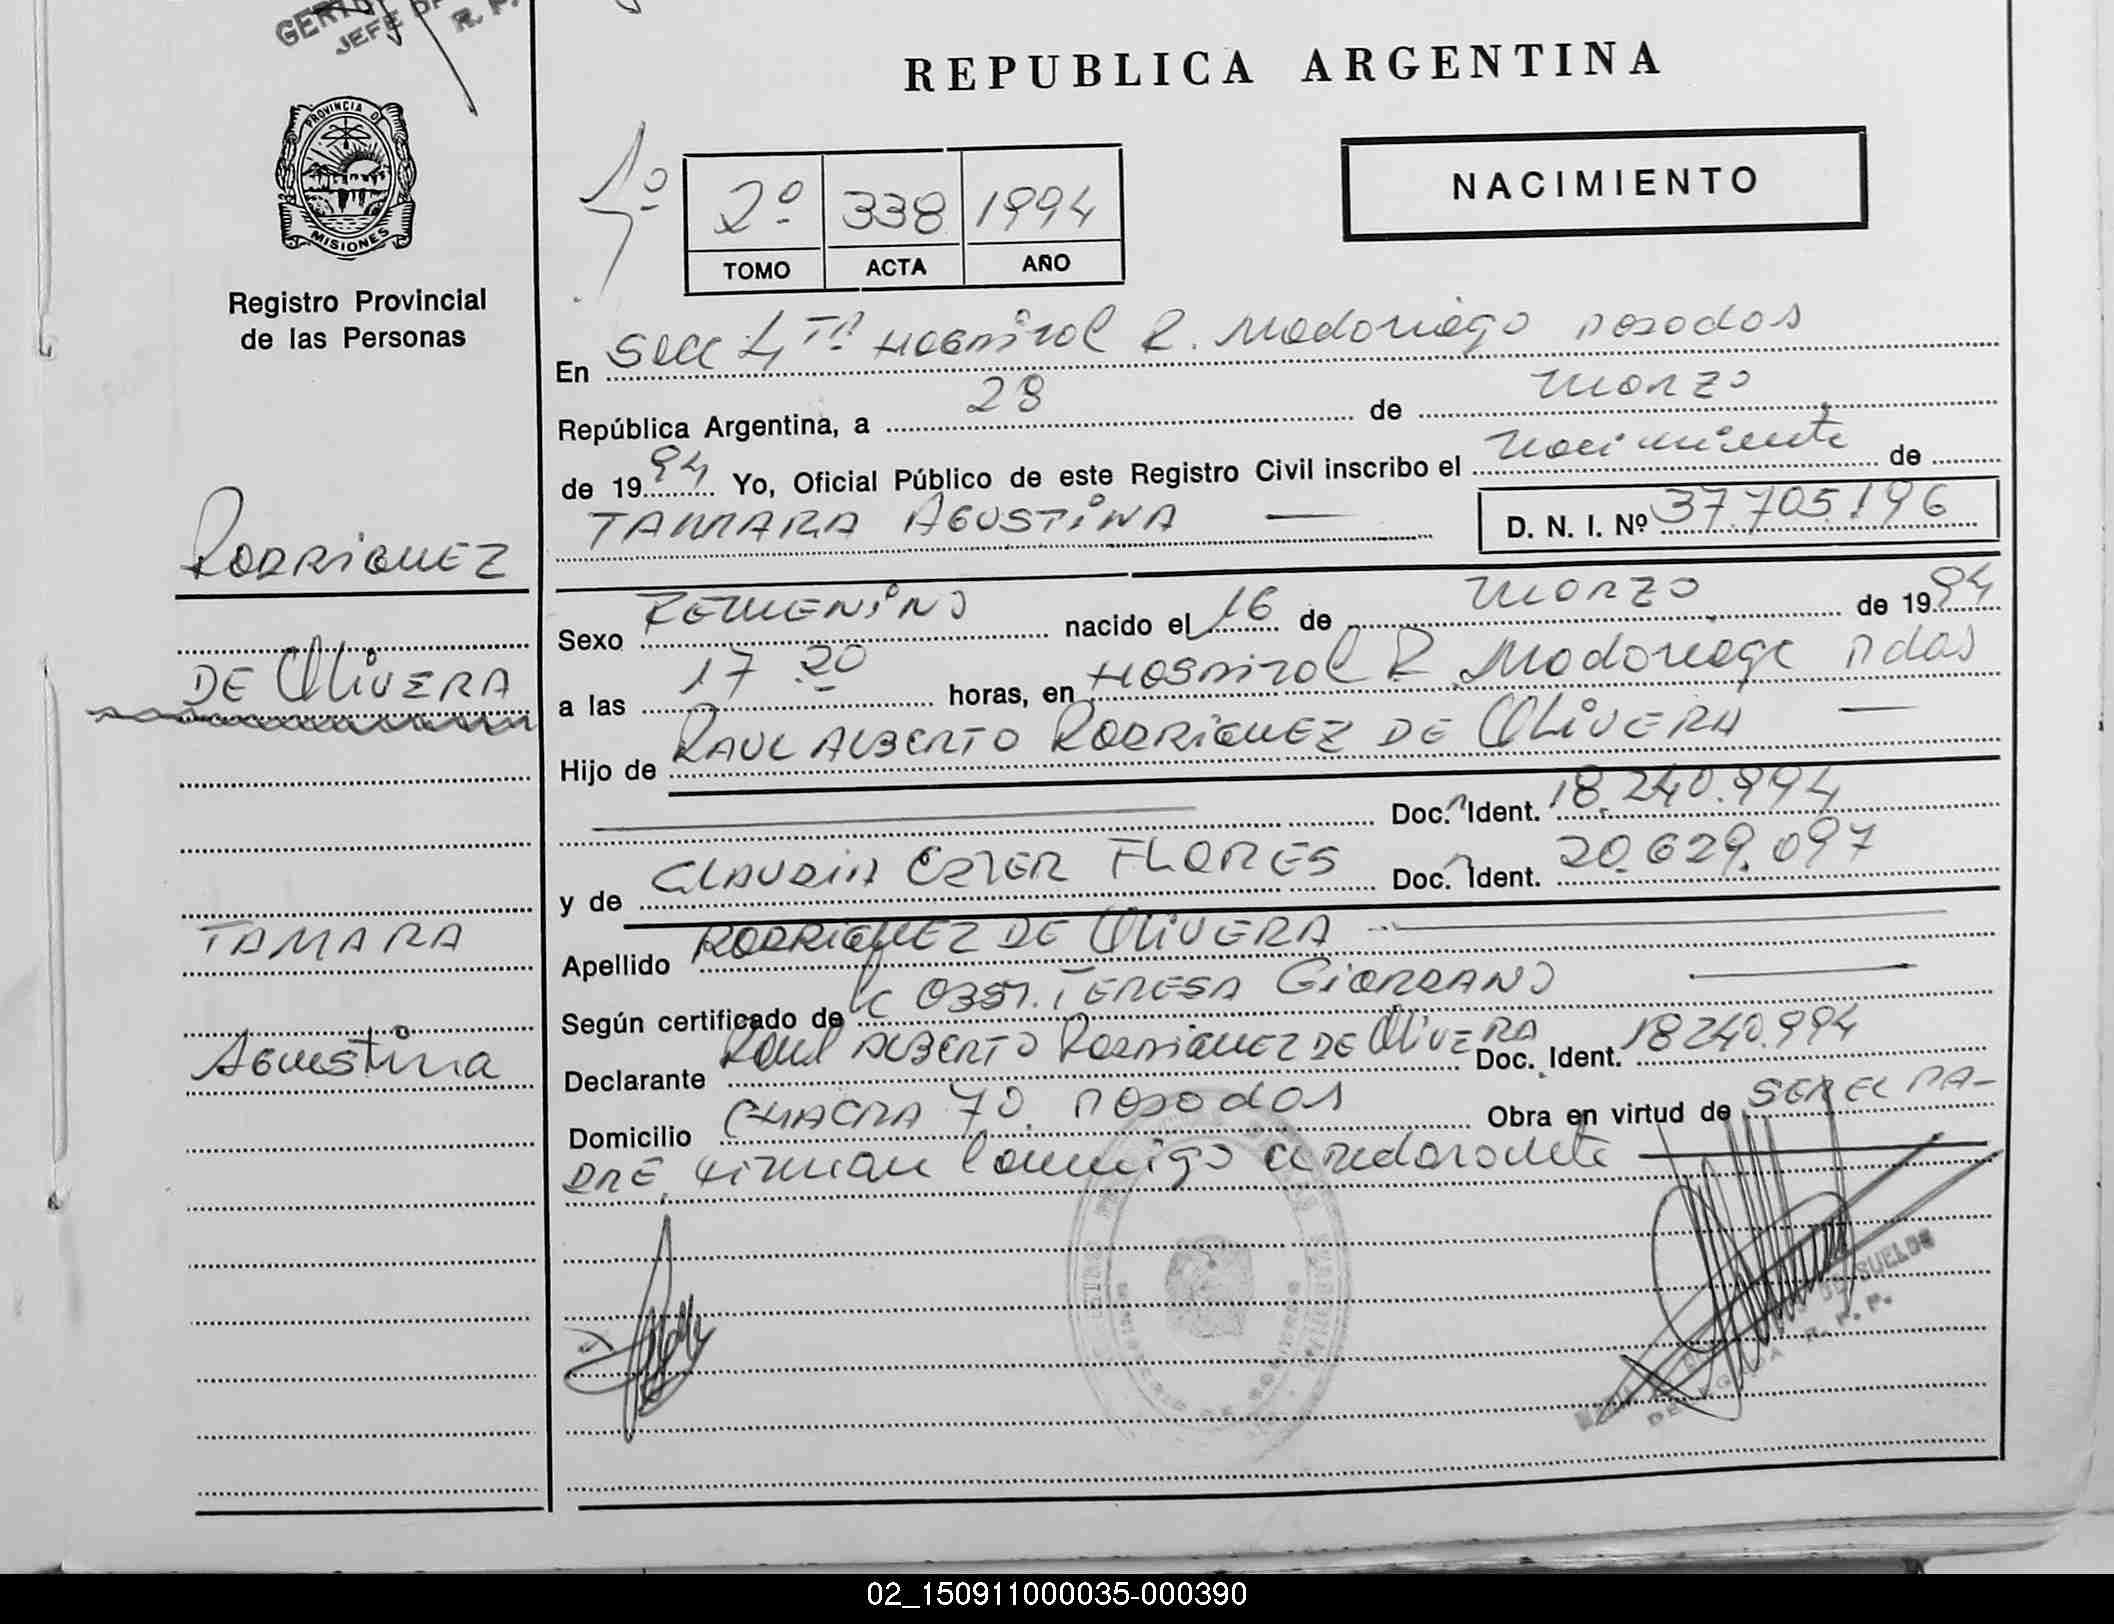 JEFE
R. P.
REPUBLICA ARGENTINA
PROVINCIA D
MISIONES
Registro Provincial
de las Personas
1º
2º 338 1994
TOMO ACTA AÑO
NACIMIENTO
En Secc 4ta Hospital R. Madariaga Posadas
República Argentina, a 28 de Marzo
de 1994 Yo, Oficial Público de este Registro Civil inscribo el Nacimiento de
TAMARA AGUSTINA D. N. I. Nº 37.705.196
RODRIGUEZ
DE OLIVERA
TAMARA
AGUSTINA
Sexo FEMENINO nacido el 16 de Marzo de 1994
a las 17 20 horas, en Hospital R Madariaga Pdas
Hijo de RAUL ALBERTO RODRIGUEZ DE OLIVERA
Doc. Ident. 18.240.994
y de CLAUDIA FLORES Doc. Ident. 20.629.097
Apellido RODRIGUEZ DE OLIVERA
Según certificado de OBST. TERESA GIORDANO
Declarante Raul ALBERTO RODRIGUEZ DE OLIVERA Doc. Ident. 18240.994
Domicilio CHACRA 70. Posadas Obra en virtud de SER EL PA-
DRE, firman conmigo
DE SUELDOS
R. P. P.
02_150911000035-000390